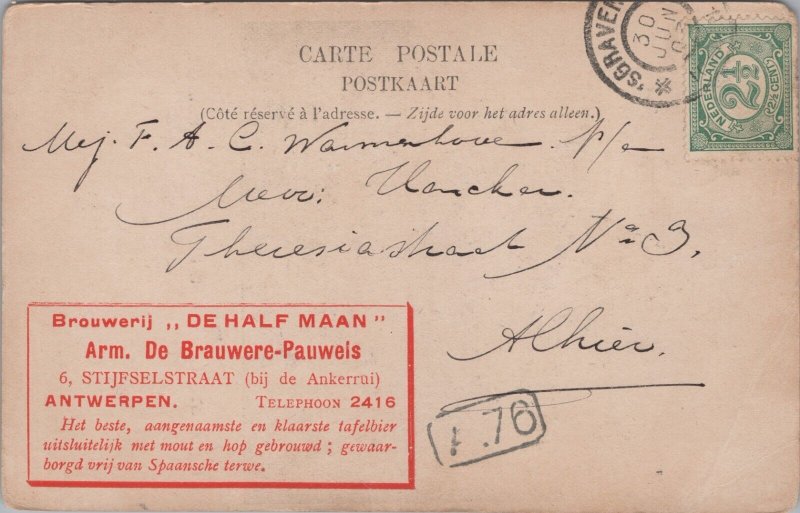 CARTE POSTALE
POSTKAART
(Côté réservé à l'adresse. — Zijde voor het adres alleen.)
'SGRAVEN
30
JUN
NEDERLAND
2½
(2½ CENT)
Mej. F. A. C. Warmenhove p/a
Mevr:
Theresiastraat No 3.
Alhier.
Brouwerij „ DE HALF MAAN "
Arm. De Brauwere-Pauwels
6, STIJFSELSTRAAT (bij de Ankerrui)
ANTWERPEN. TELEPHOON 2416
Het beste, aangenaamste en klaarste tafelbier
uitsluitelijk met mout en hop gebrouwd ; gewaar-
borgd vrij van Spaansche terwe.
76